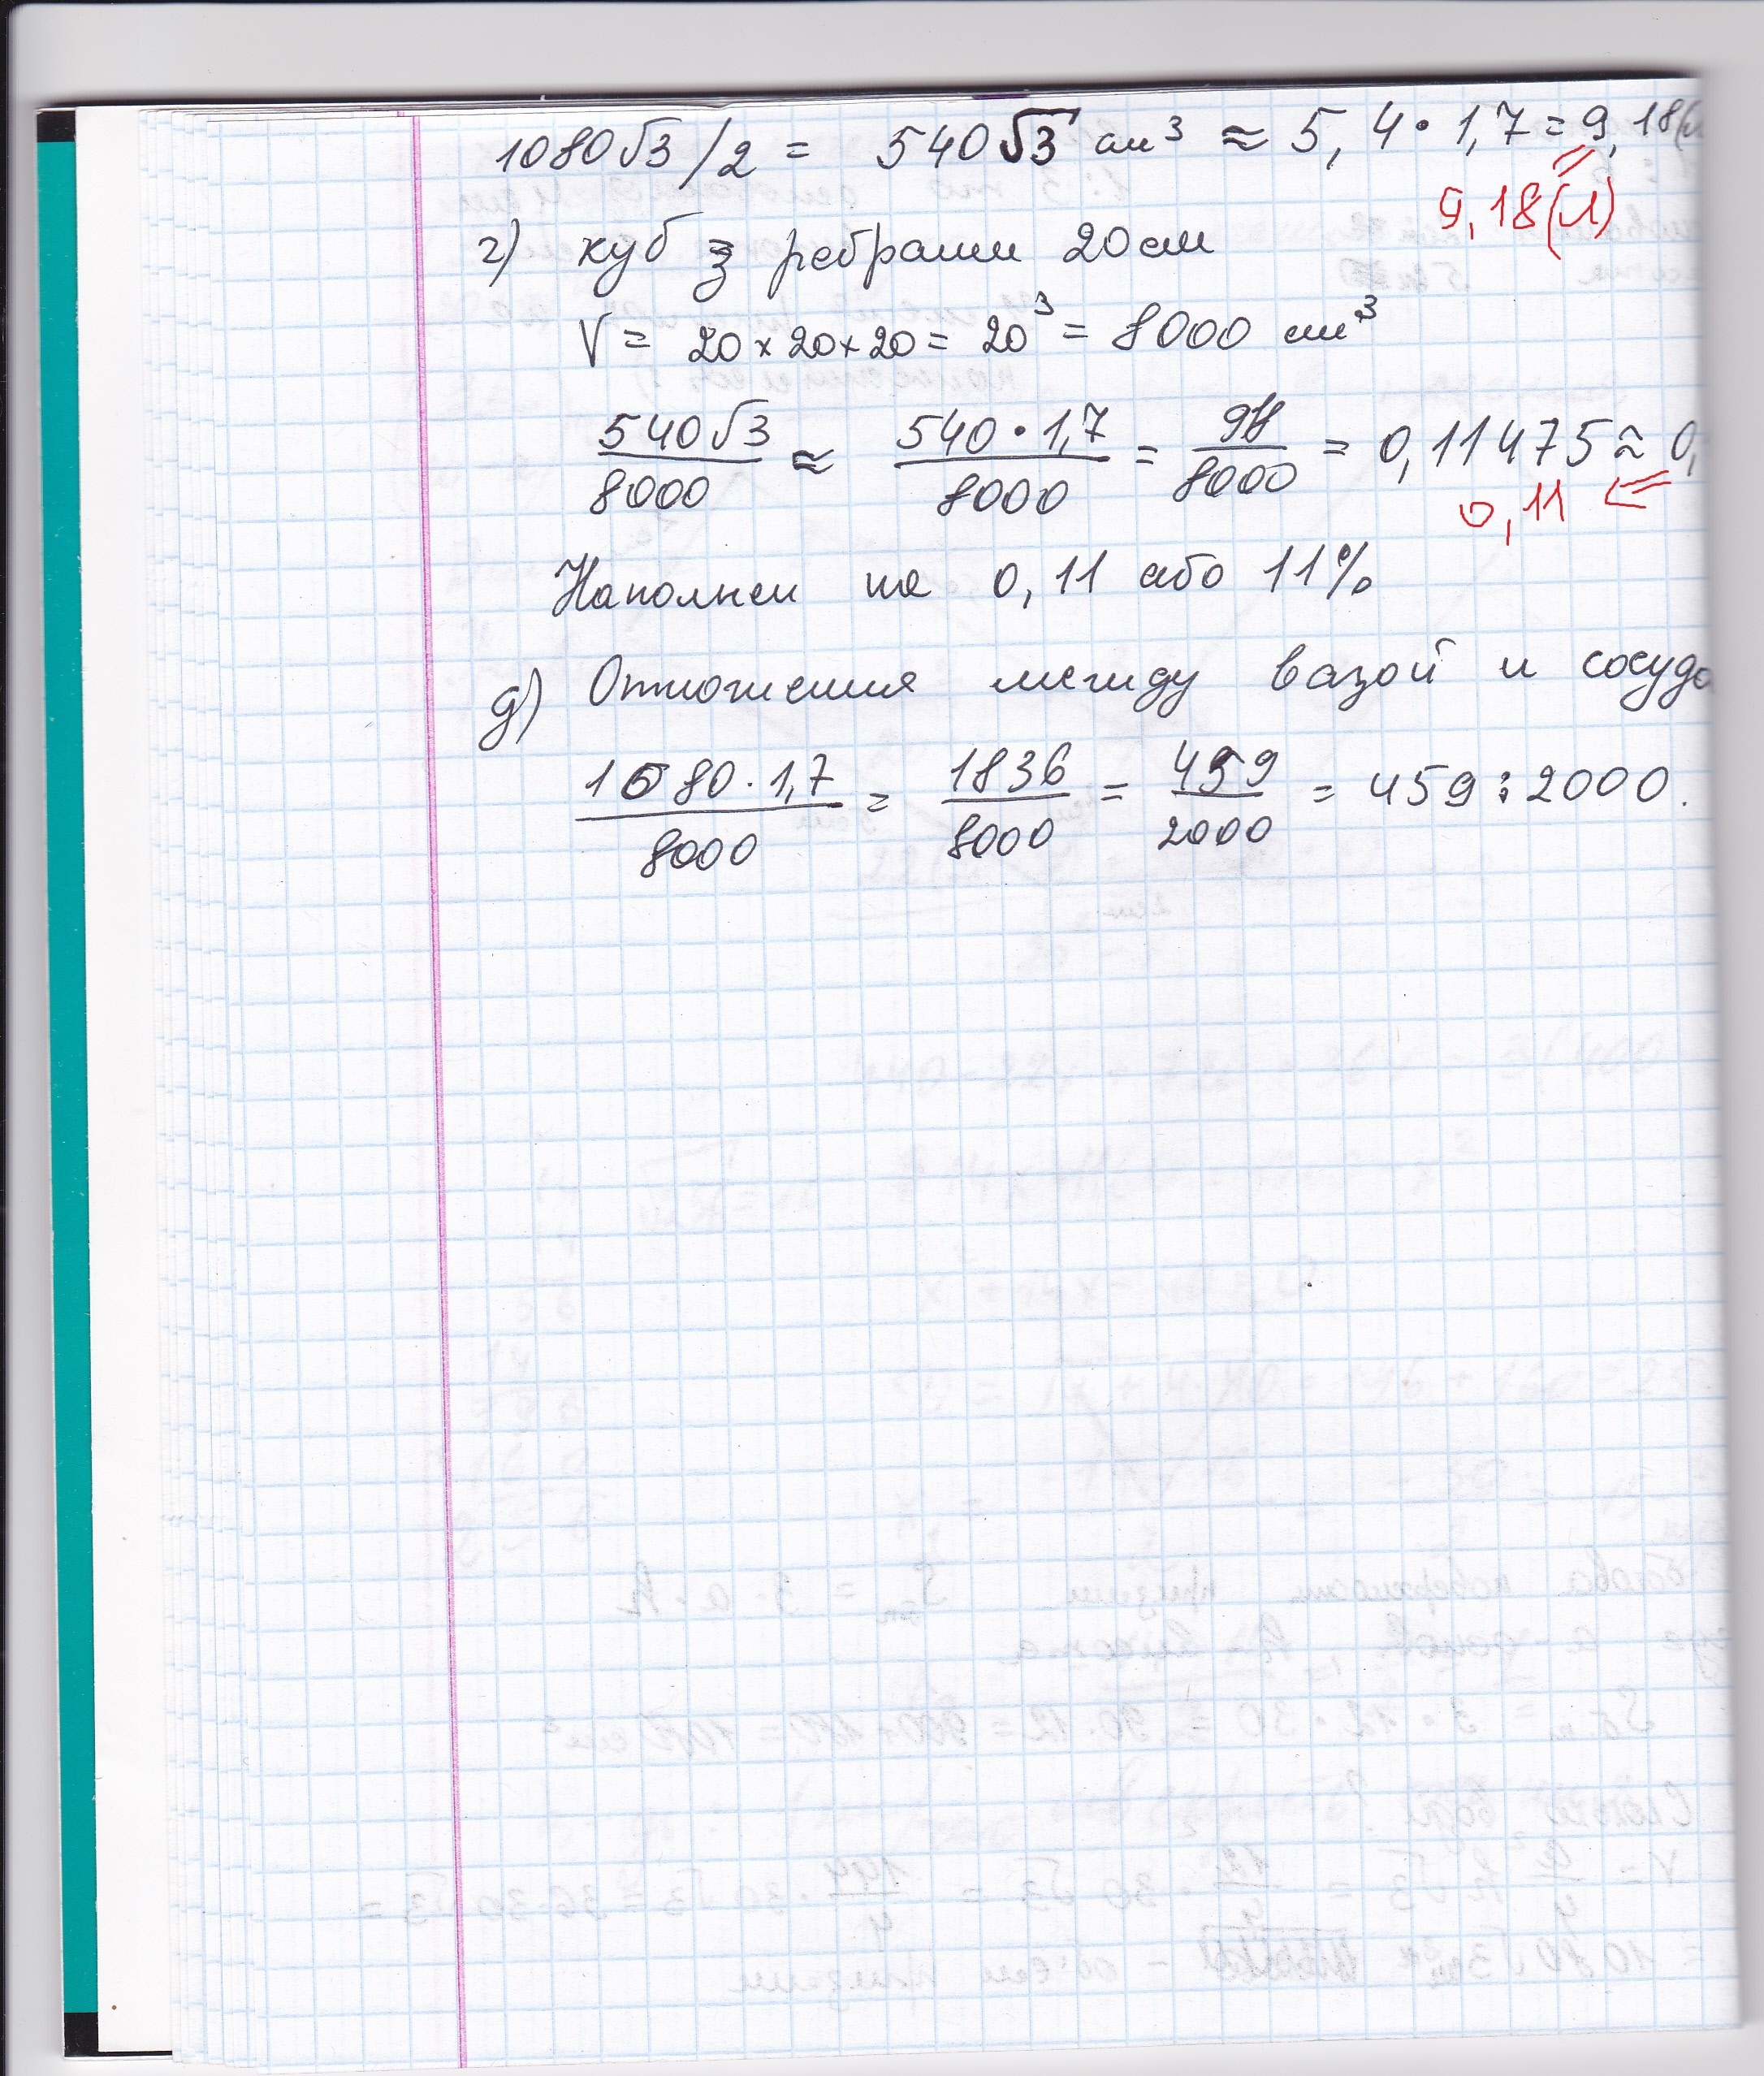 1080√3 / 2 = 540√3 см³ ≈ 5,4 · 1,7 = 9,18(л
9,18(л)
г) куб з ребрами 20см
V = 20 × 20 × 20 = 20³ = 8000 см³
540√3/8000 ≈ 540 · 1,7/8000 = /8000 = 0,11475 ≈ 0,
0,11
Наполнен на 0,11 або 11%
д) Отношения между вазой и сосудо
1080 · 1,7/8000 = 1836/8000 = 459/2000 = 459 : 2000.